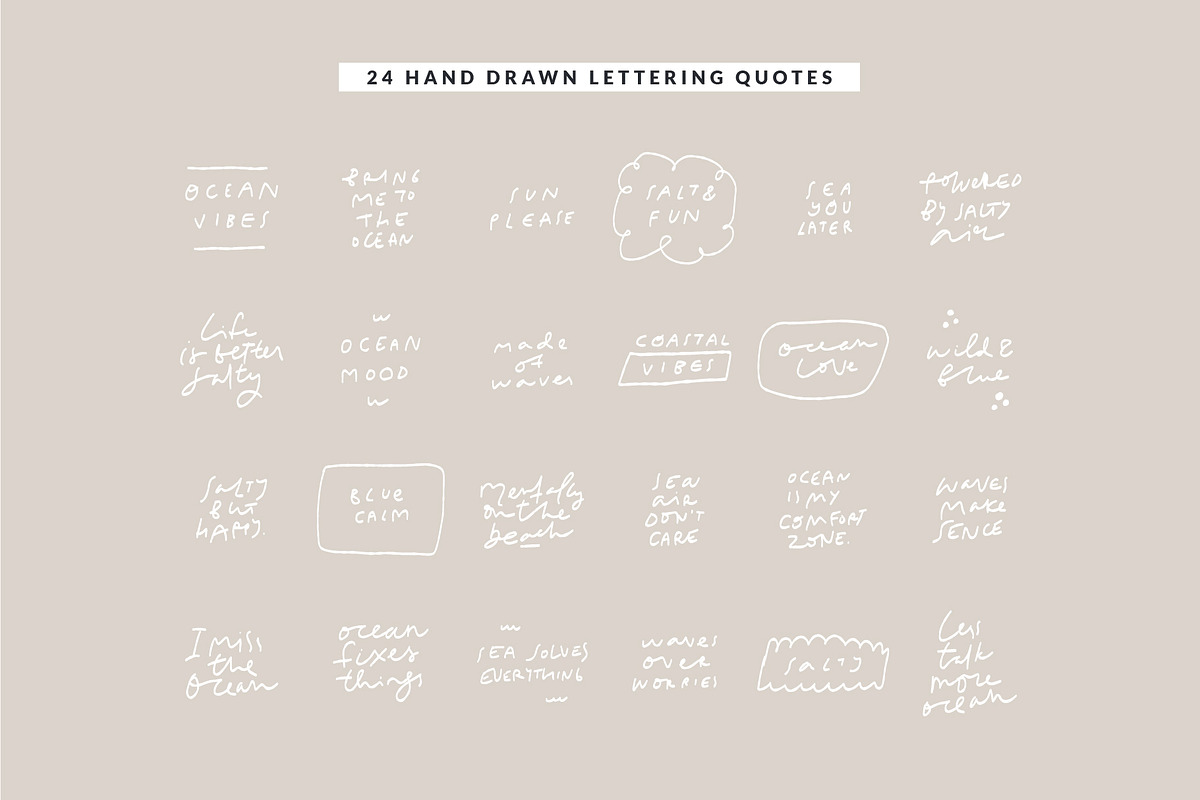 24 HAND DRAWN LETTERING QUOTES
OCEAN
VIBES
BRING
ME TO
THE
OCEAN
SUN
PLEASE
SALT &
FUN
SEA
YOU
LATER
POWERED
BY SALTY
air
Life
is better
salty
OCEAN
MOOD
made
of
waves
COASTAL
VIBES
ocean
love
wild &
blue
SALTY
BUT
HAPPY.
BLUE
CALM
Mentally
on the
beach
SEA
air
DON'T
CARE
OCEAN
IS MY
COMFORT
ZONE.
WAVES
MAKE
SENCE
I miss
the
Ocean
ocean
fixes
things
SEA SOLVES
EVERYTHING
waves
over
WORRIES
SALTY
Less
talk
more
ocean